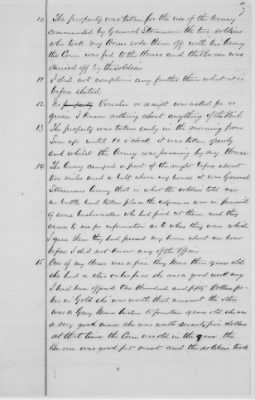 10 The property was taken for the use of the Army
commanded by General Stoneman the two soldiers
who took my Horses rode them off with his Army
the Corn was fed to the Horses and the Bacon was
carried off by the Soldiers
11 I did not complain any further than what it is
before stated.
12 No Voucher or receipt was asked for or
given I know nothing about anything of the kind
13 The property was taken early in the morning from
Sun up until 10 o'clock it was taken openly
and whilst the Army was passing by my House
14 The Army camped a part of the night before about
two miles and a half above my house it was General
Stoneman's Army that is what the soldiers told me
no battle had taken place the
of some bushwhackers who had fired at them and they
came to me for information as to what they were which
I gave them they had passed my house about an hour
before I did not know any of the Officers
15 One of my Horses was a fine Bay Mare three years old
she had a she was a good
I had been offered One Hundred and fifty Dollars for
her in Gold she was worth that amount the other
was a Gray Mare twelve to fourteen years old she was
a very good mare she was worth seventy five dollars
at that time the Corn was old in the year the
Bacon was good fat meat and the soldiers took